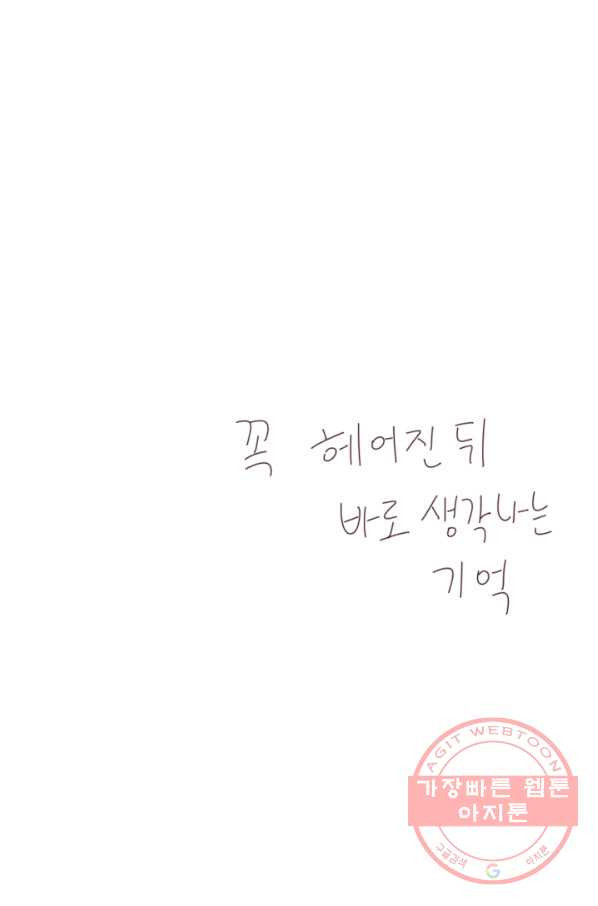 꼭 헤어진 뒤
바로 생각나는
기억
AGIT WEBTOON
가장빠른 웹툰
아지툰
구글검색 G 아지툰